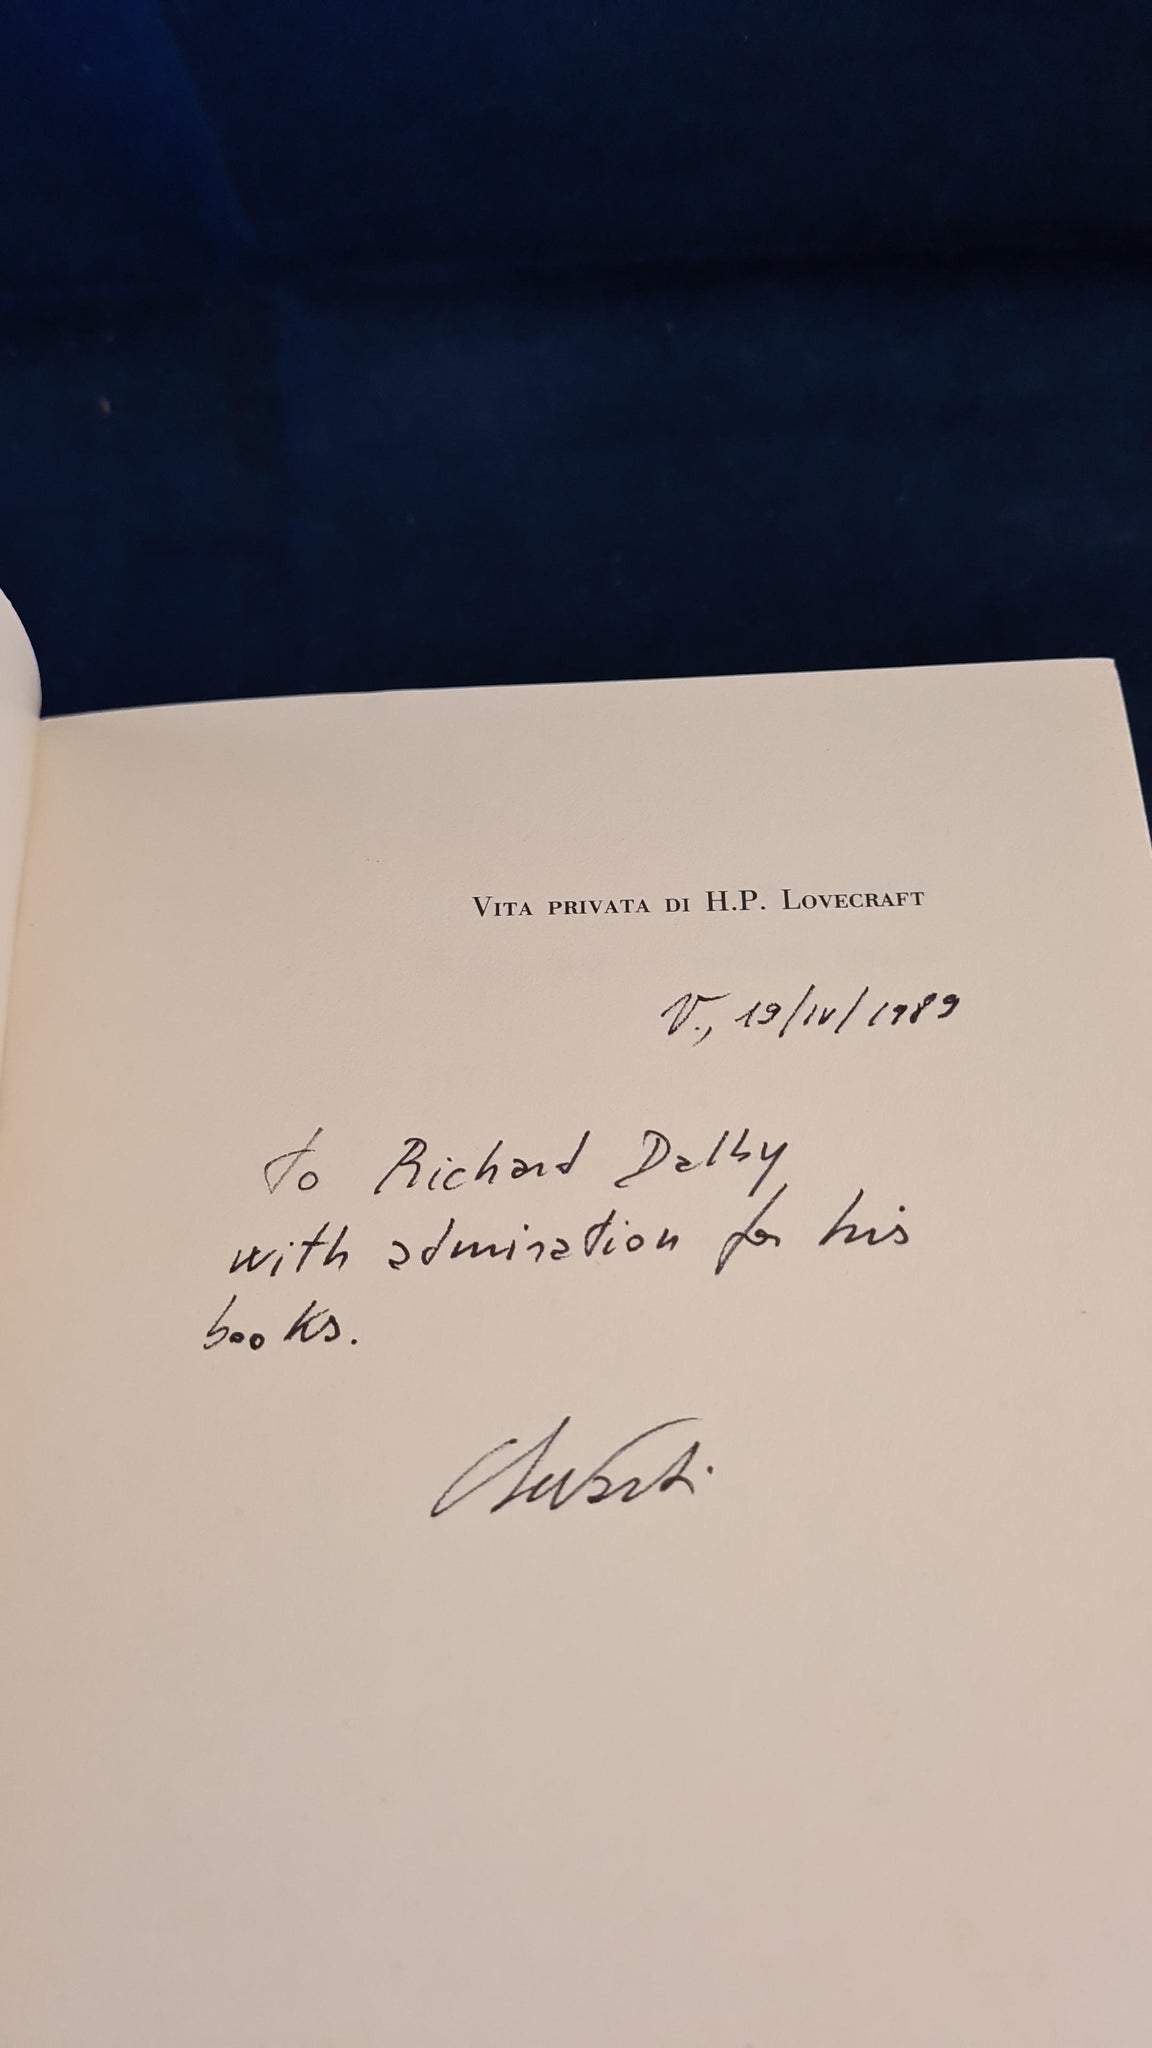 Vita privata di H.P. Lovecraft
V., 19/IV/1989
To Richard Dalby
with admiration for his
books.